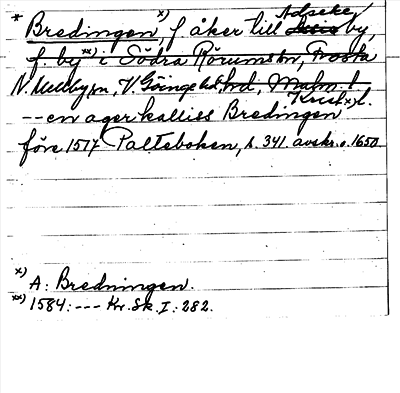 * Bredingen, x) f åker till Adseke by,
f. by xx) i Södra Rörumsn, Frosta
N. Mellby sn, V. Göinge hd, Malm. l.
Krist. l.
--en ager kalliss Bredingen x)
före 1517 Palteboken, s. 341. avskr. o. 1650.
x) A: Bredningen.
xx) 1584: --- Kr. Sk. I: 282.